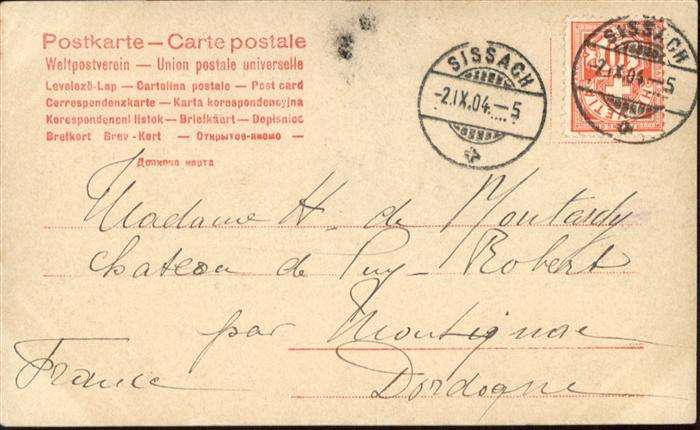 Postkarte — Carte postale
Weltpostverein — Union postale universelle
Levelező-Lap — Cartolina postale — Post card
Correspondenzkarte — Karta korespondencyjna
Korespondencni listok — Briefkaart — Dopisniec
Brefkort Brev-Kort — Открытое письмо —
Дописна карта
SISSACH
-2.IX.04.-5
SISSACH
-2.IX.04.-5
10
Madame H. de Montardy
chateau de Puy-Robert
par Montignac
France Dordogne